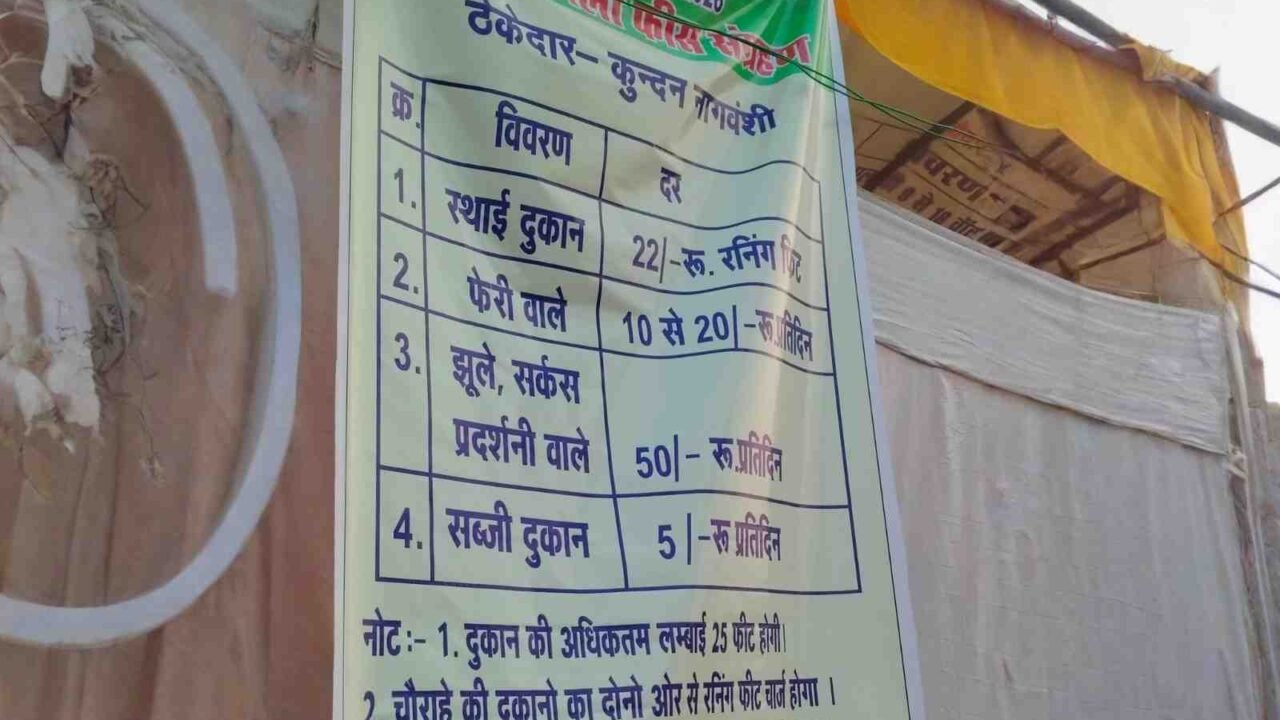 फीस संग्रहण
ठेकेदार– कुन्दन नागवंशी
क्र. विवरण दर
1. स्थाई दुकान 22/-रू. रनिंग फिट
2. फेरी वाले 10 से 20/-रू.प्रतिदिन
3. झूले, सर्कस
प्रदर्शनी वाले 50/- रू.प्रतिदिन
4. सब्जी दुकान 5/-रू प्रतिदिन
नोट :- 1. दुकान की अधिकतम लम्बाई 25 फीट होगी।
2. चौराहे की दुकानो का दोनो ओर से रनिंग फीट चार्ज होगा ।